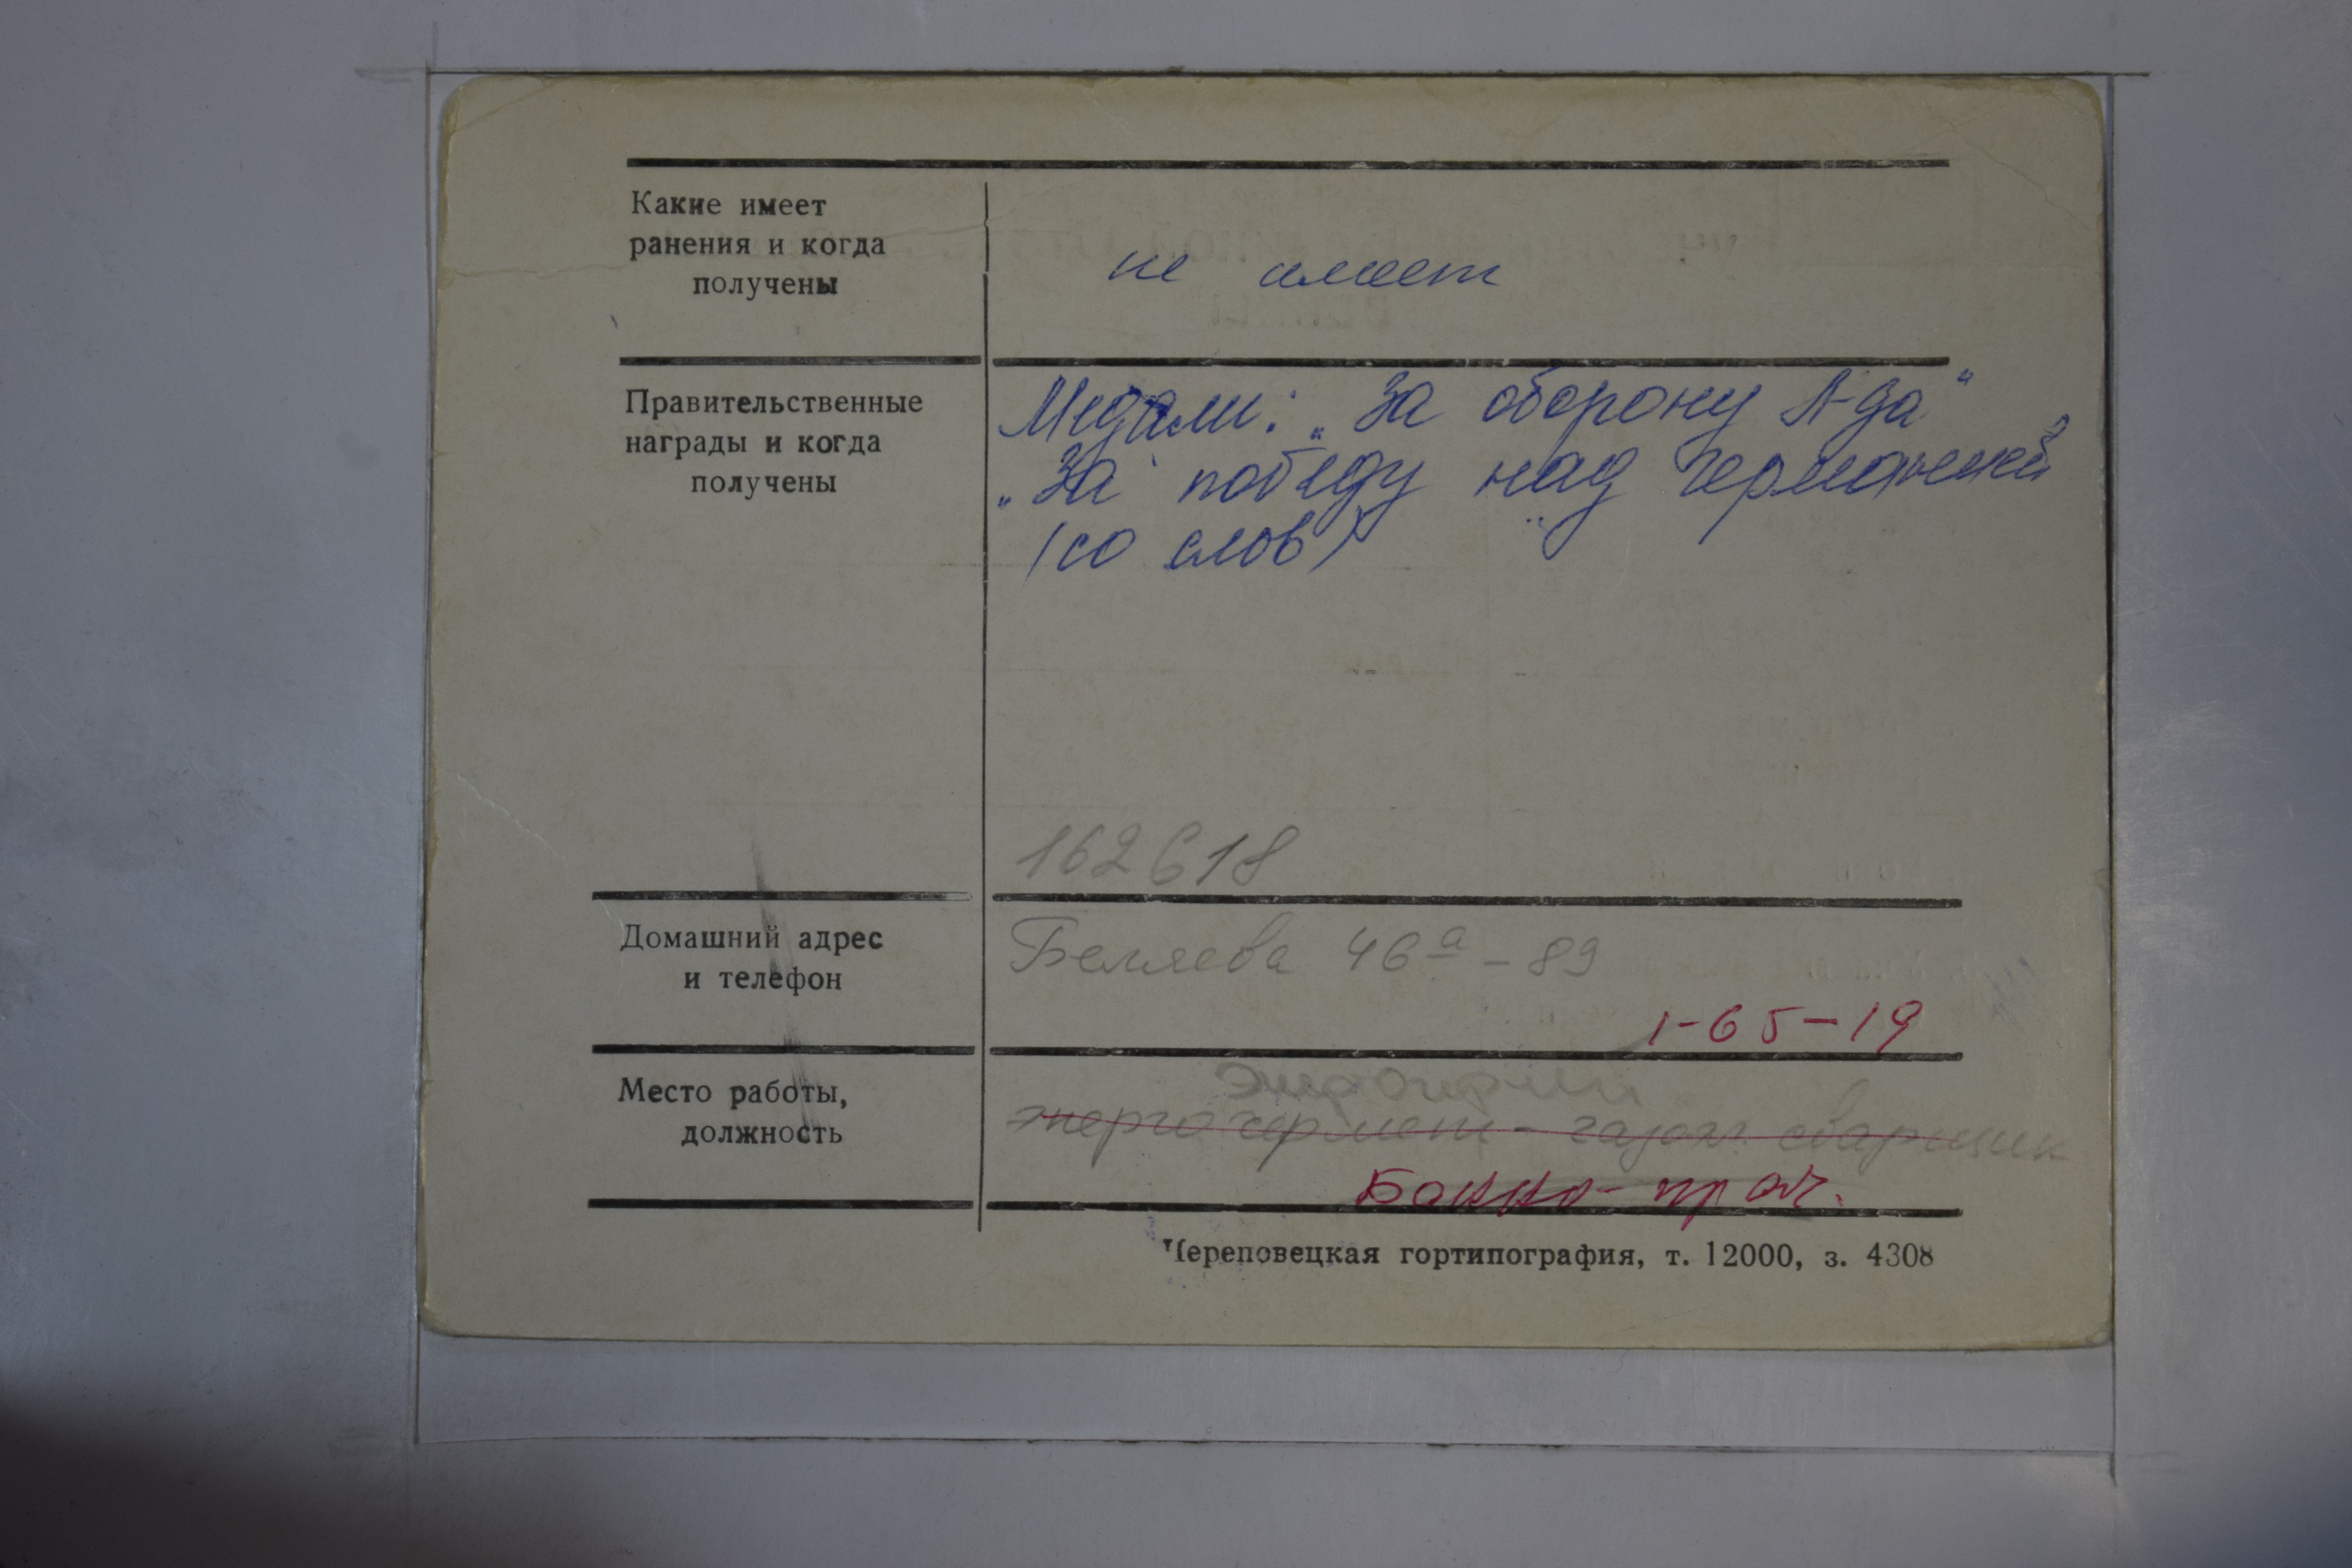 Какие имеет
ранения и когда
получены
не имеет
Правительственные
награды и когда
получены
Медали: „За оборону Л-да"
„За победу над Германией"
(со слов)
162618
Домашний адрес
и телефон
Беляева 46а - 89
1-65-19
Место работы,
должность
энергочермет - сварщик
Банно-прач.
Череповецкая гортипография, т. 12000, з. 4308